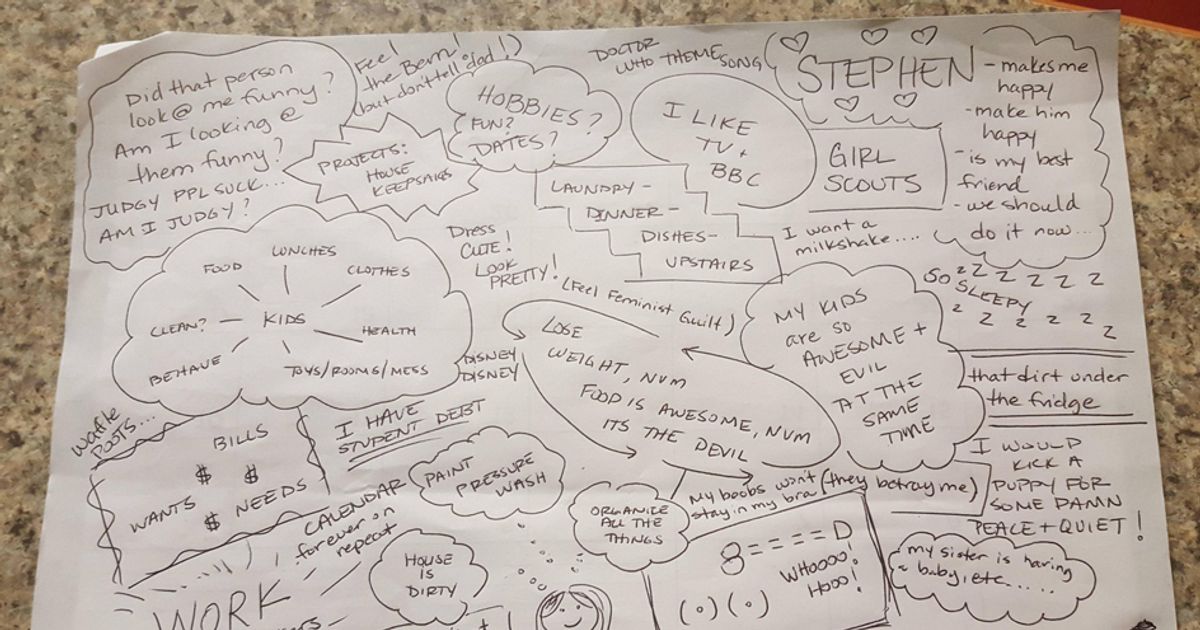 Did that person
look @ me funny?
Am I looking @
them funny?
JUDGY PPL SUCK...
AM I JUDGY?
Feel
the Bern!
(but don't tell dad!)
PROJECTS:
HOUSE
KEEPSAKES
HOBBIES?
FUN?
DATES?
DOCTOR
WHO THEME SONG
I LIKE
TV +
BBC
STEPHEN
- makes me
happy
- make him
happy
- is my best
friend
- we should
do it now...
GIRL
SCOUTS
LAUNDRY -
DINNER -
DISHES -
UPSTAIRS
I want a
milkshake....
Dress
CUTE!
LOOK
PRETTY!
(Feel Feminist Guilt)
LUNCHES
FOOD
CLOTHES
CLEAN?
KIDS
HEALTH
BEHAVE
TOYS/ROOMS/MESS
DISNEY
DISNEY
LOSE
WEIGHT, NVM
FOOD IS AWESOME, NVM
ITS THE DEVIL
MY KIDS
are so
AWESOME +
EVIL
AT THE
SAME
TIME
SO
SLEEPY
z z z z z z z
z z z z z z
that dirt under
the fridge
I WOULD
KICK A
PUPPY FOR
SOME DAMN
PEACE + QUIET!
waffle
POSTS...
BILLS
$ $
WANTS $ NEEDS
I HAVE
STUDENT DEBT
CALENDAR
forever on
repeat
PAINT
PRESSURE
WASH
ORGANIZE
ALL THE
THINGS
My boobs won't (they betray me)
stay in my bra
8====D
WHOOOO!
HOOO!
(o)(o)
my sister is having
a baby, etc....
HOUSE
IS
DIRTY
WORK